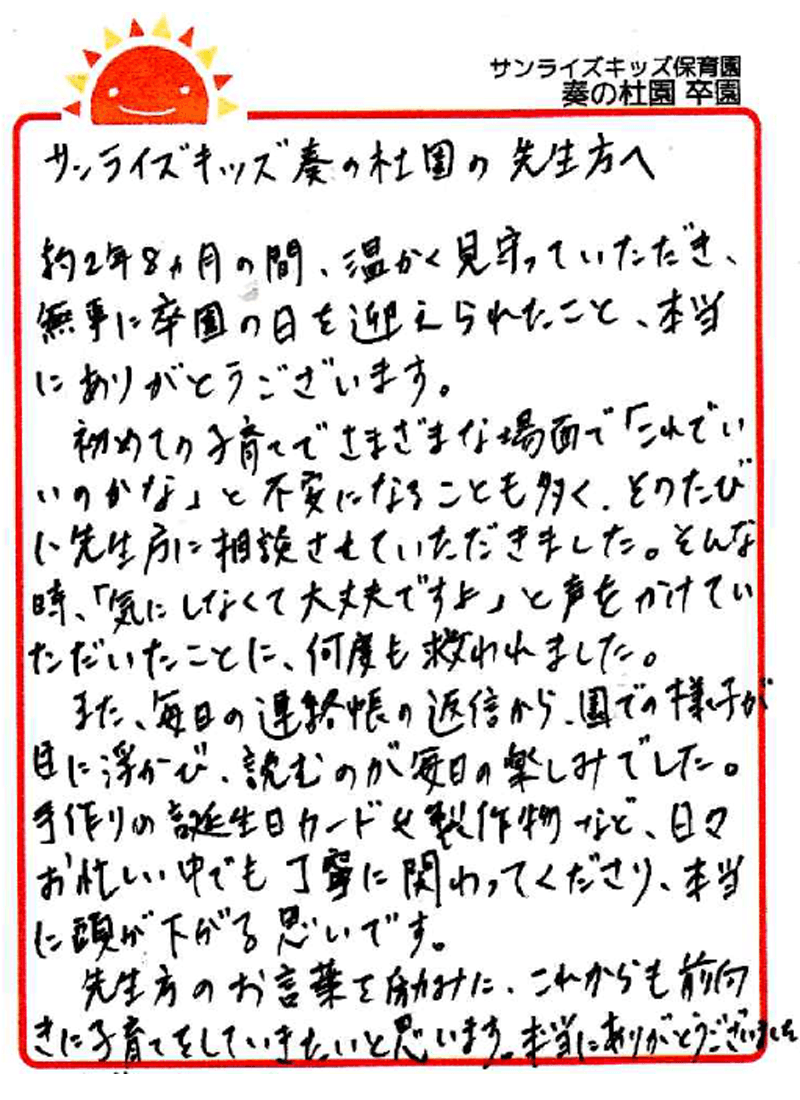 サンライズキッズ保育園
奏の杜園 卒園
サンライズキッズ奏の杜園の先生方へ
約2年8ヵ月の間、温かく見守っていただき、
無事に卒園の日を迎えられたこと、本当
にありがとうございます。
初めての子育てでさまざまな場面で「これでい
いのかな」と不安になることも多く、そのたび
に先生方に相談させていただきました。そんな
時、「気にしなくて大丈夫ですよ」と声をかけてい
ただいたことに、何度も救われました。
また、毎日の連絡帳の返信から、園での様子が
目に浮かび、読むのが毎日の楽しみでした。
手作りの誕生日カードや製作物など、日々
お忙しい中でも丁寧に関わってくださり、本当
に頭が下がる思いです。
先生方のお言葉を励みに、これからも前向
きに子育てをしていきたいと思います。本当にありがとうございました